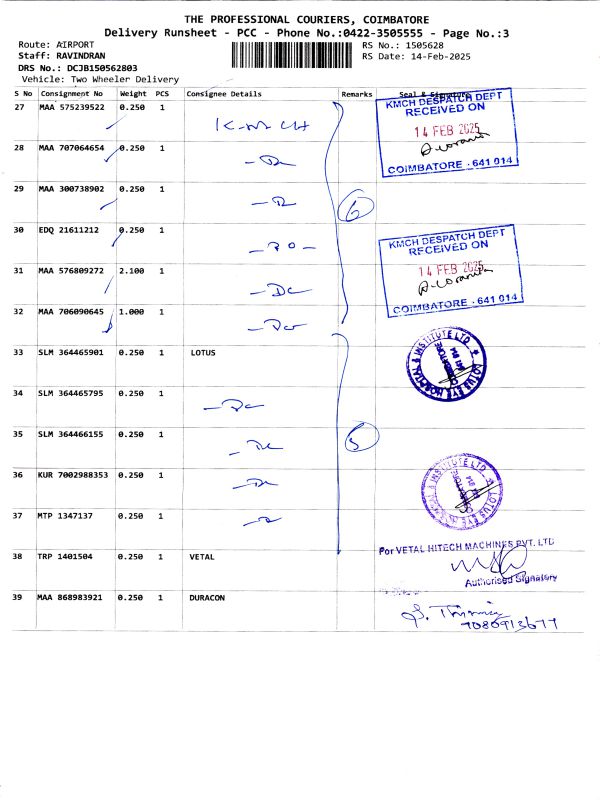 THE PROFESSIONAL COURIERS, COIMBATORE
Delivery Runsheet - PCC - Phone No.:0422-3505555 - Page No.:3
Route: AIRPORT RS No.: 1505628
Staff: RAVINDRAN RS Date: 14-Feb-2025
DRS No.: DCJB150562803
Vehicle: Two Wheeler Delivery
S No Consignment No Weight PCS Consignee Details Remarks Seal & Signature
27 MAA 575239522 0.250 1 KMCH
28 MAA 707064654 0.250 1
29 MAA 300738902 0.250 1
6
30 EDQ 21611212 0.250 1
31 MAA 576809272 2.100 1
32 MAA 706090645 1.000 1
KMCH DESPATCH DEPT
RECEIVED ON
14 FEB 2025
COIMBATORE - 641 014
KMCH DESPATCH DEPT
RECEIVED ON
14 FEB 2025
COIMBATORE - 641 014
33 SLM 364465901 0.250 1 LOTUS
34 SLM 364465795 0.250 1
35 SLM 364466155 0.250 1
5
36 KUR 7002988353 0.250 1
37 MTP 1347137 0.250 1
LOTUS EYE HOSPITAL & INSTITUTE LTD
COIMBATORE
641 014
LOTUS EYE HOSPITAL & INSTITUTE LTD
641 014
38 TRP 1401504 0.250 1 VETAL
For VETAL HITECH MACHINES PVT. LTD
Authorised Signatory
39 MAA 868983921 0.250 1 DURACON
7080913677